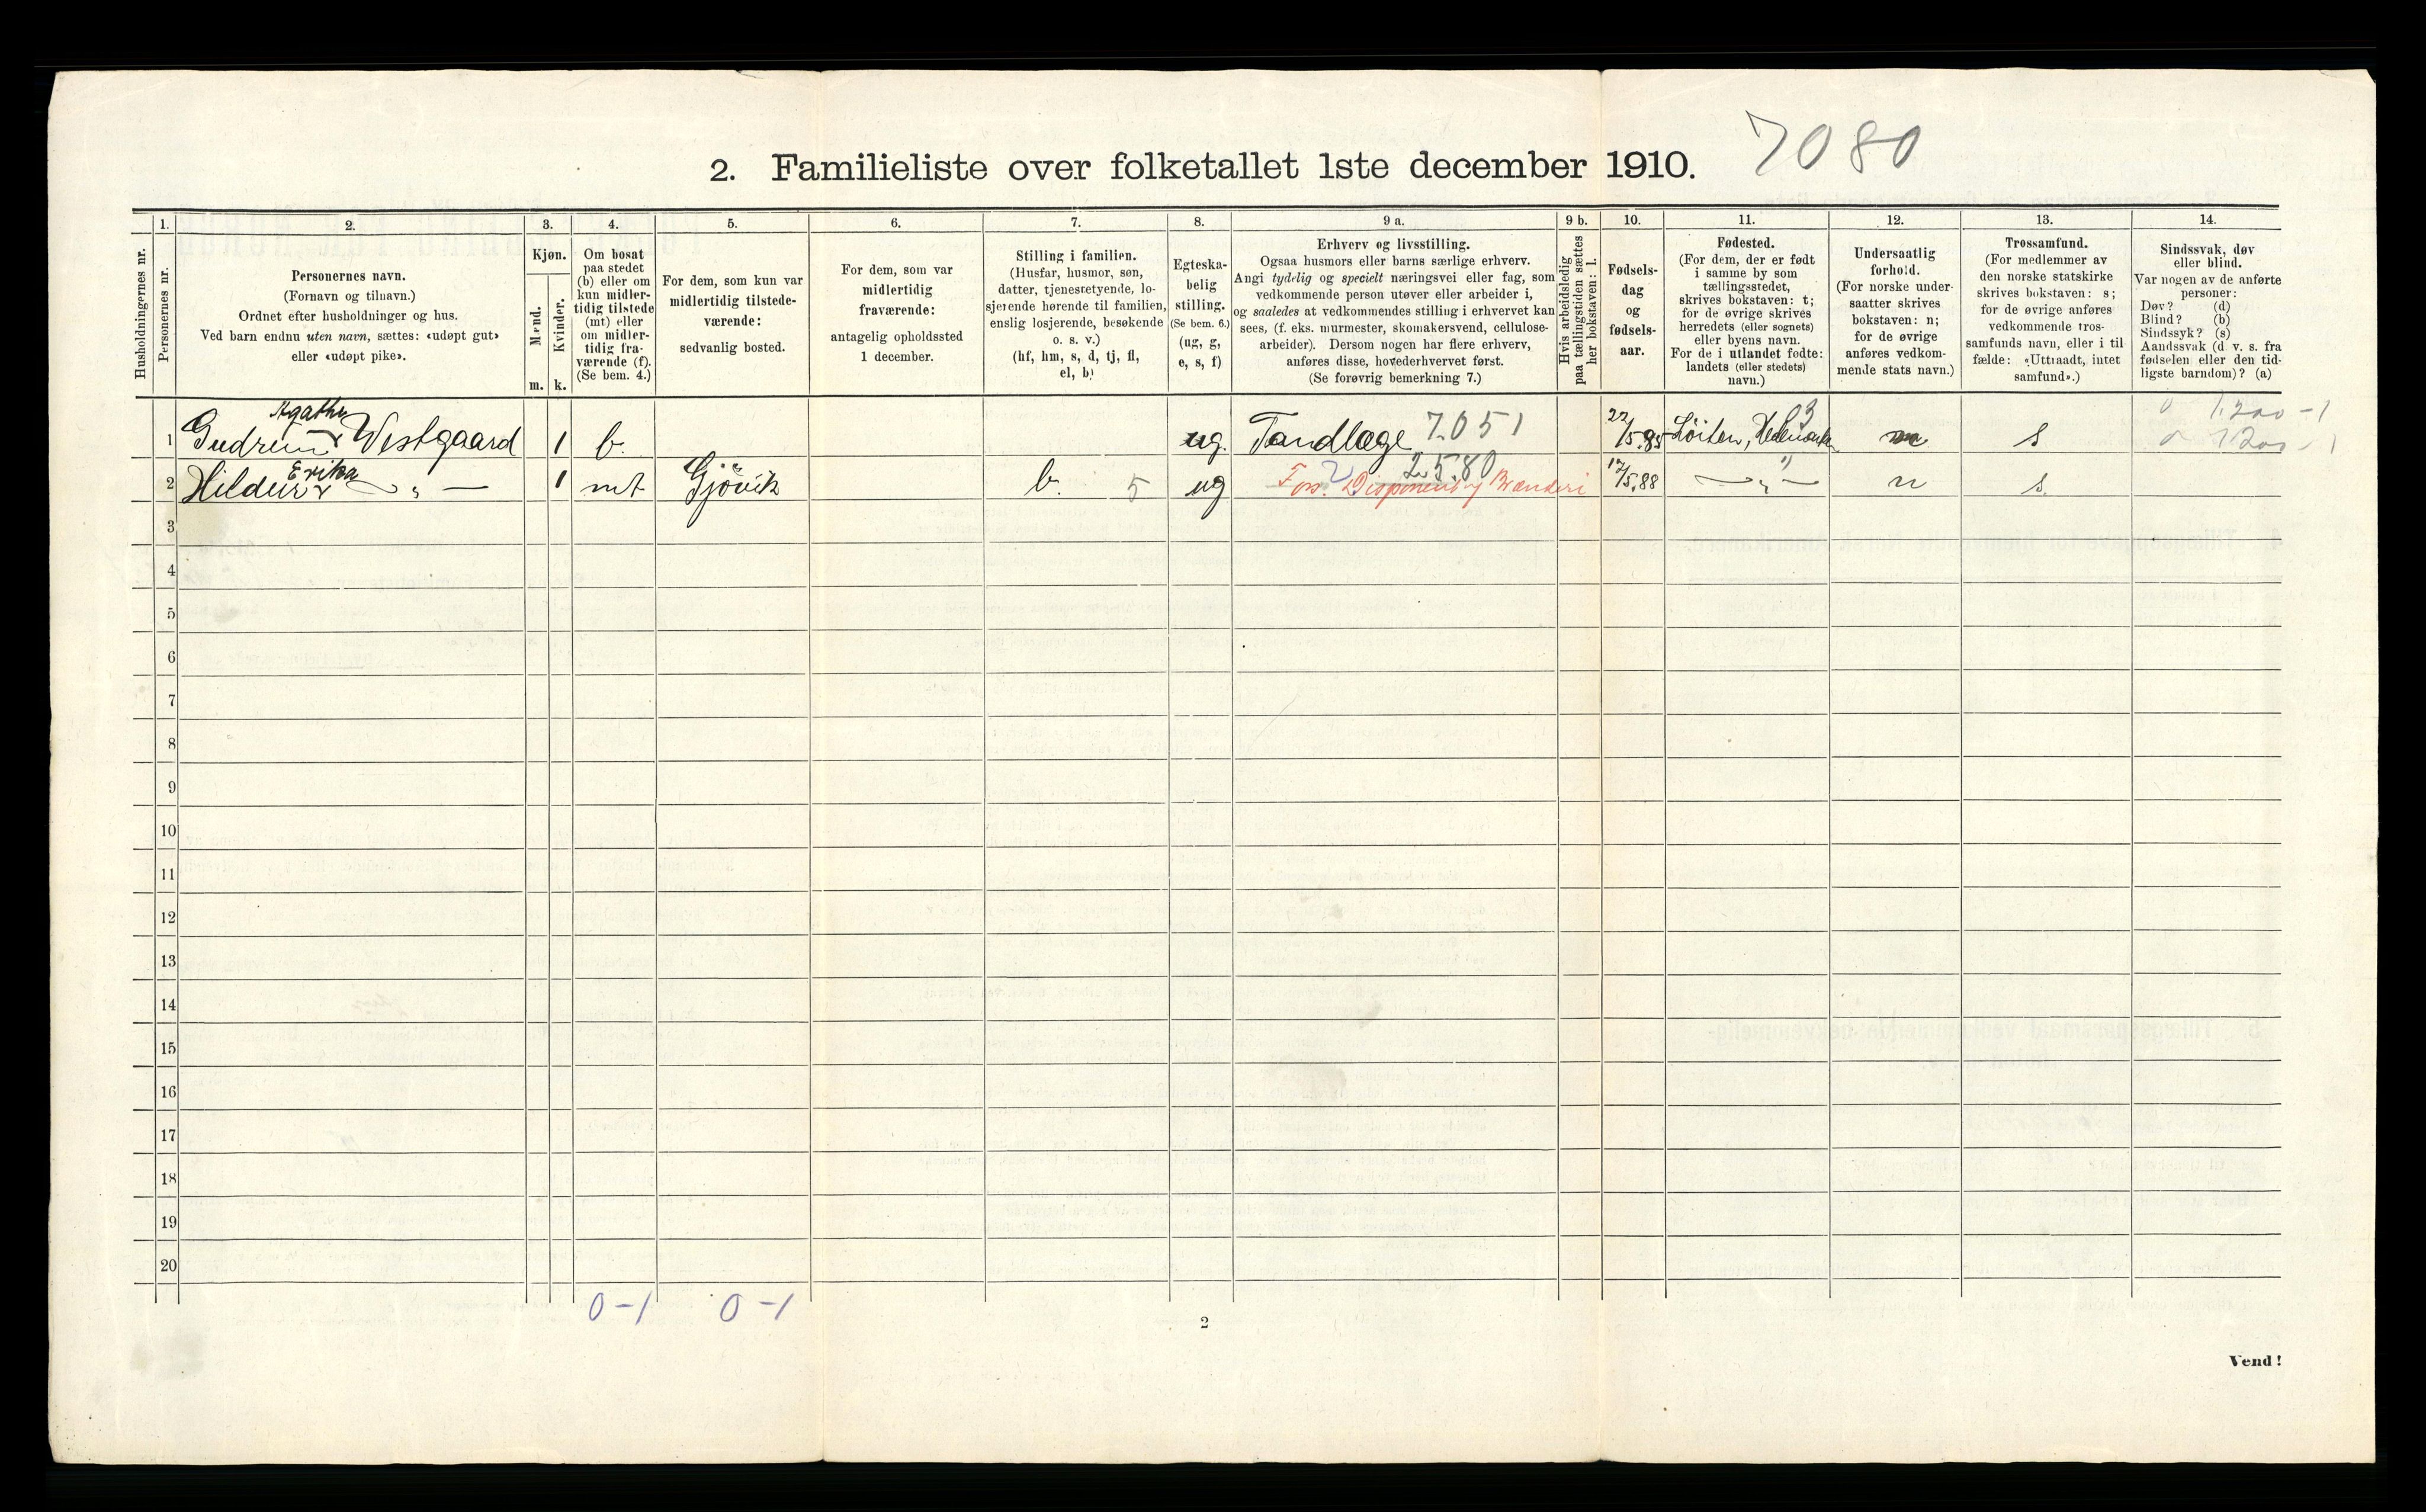 7080
2. Familieliste over folketallet 1ste december 1910.
Husholdningernes nr.
1.
Personernes nr.
2.
Personernes navn.
(Fornavn og tilnavn.)
Ordnet efter husholdninger og hus.
Ved barn endnu uten navn, sættes: «udøpt gut»
eller «udøpt pike».
3.
Kjøn.
Mænd.
m.
Kvinder.
k.
4.
Om bosat
paa stedet
(b) eller om
kun midler-
tidig tilstede
(mt) eller
om midler-
tidig fra-
værende (f).
(Se bem. 4.)
5.
For dem, som kun var
midlertidig tilstede-
værende:
sedvanlig bosted.
6.
For dem, som var
midlertidig
fraværende:
antagelig opholdssted
1 december.
7.
Stilling i familien.
(Husfar, husmor, søn,
datter, tjenestetyende, lo-
sjerende hørende til familien,
enslig losjerende, besøkende
o. s. v.)
(hf, hm, s, d, tj, fl,
el, b)
8.
Egteska-
belig
stilling.
(Se bem. 6.)
(ug, g,
e, s, f)
9 a.
Erhverv og livsstilling.
Ogsaa husmors eller barns særlige erhverv.
Angi tydelig og specielt næringsvei eller fag, som
vedkommende person utøver eller arbeider i,
og saaledes at vedkommendes stilling i erhvervet kan
sees, (f. eks. murmester, skomakersvend, cellulose-
arbeider). Dersom nogen har flere erhverv,
anføres disse, hovederhvervet først.
(Se forøvrig bemerkning 7.)
9 b.
Hvis arbeidsledig
paa tællingstiden sættes
her bokstaven: l.
10.
Fødsels-
dag
og
fødsels-
aar.
11.
Fødested.
(For dem, der er født
i samme by som
tællingsstedet,
skrives bokstaven: t;
for de øvrige skrives
herredets (eller sognets)
eller byens navn.
For de i utlandet fødte:
landets (eller stedets)
navn.)
12.
Undersaatlig
forhold.
(For norske under-
saatter skrives
bokstaven: n;
for de øvrige
anføres vedkom-
mende stats navn.)
13.
Trossamfund.
(For medlemmer av
den norske statskirke
skrives bokstaven: s;
for de øvrige anføres
vedkommende tros-
samfunds navn, eller i til
fælde: «Uttraadt, intet
samfund».)
14.
Sindssvak, døv
eller blind.
Var nogen av de anførte
personer:
Døv? (d)
Blind? (b)
Sindssyk? (s)
Aandssvak (d. v. s. fra
fødselen eller den tid-
ligste barndom)? (a)
Agathe
1 Gudrun Westgaard 1 b. ug. Tandlæge 7051 22/5.85 Löiten, Hedemark n s 1.200-1
Erika
2 Hildur — „ — 1 mt Gjövik b. 5 ug 2580 Fors. Disponent Brænderi 17/5.88 — „ — n s.
3
4
5
6
7
8
9
10
11
12
13
14
15
16
17
18
19
20
0-1 0-1
2
Vend!